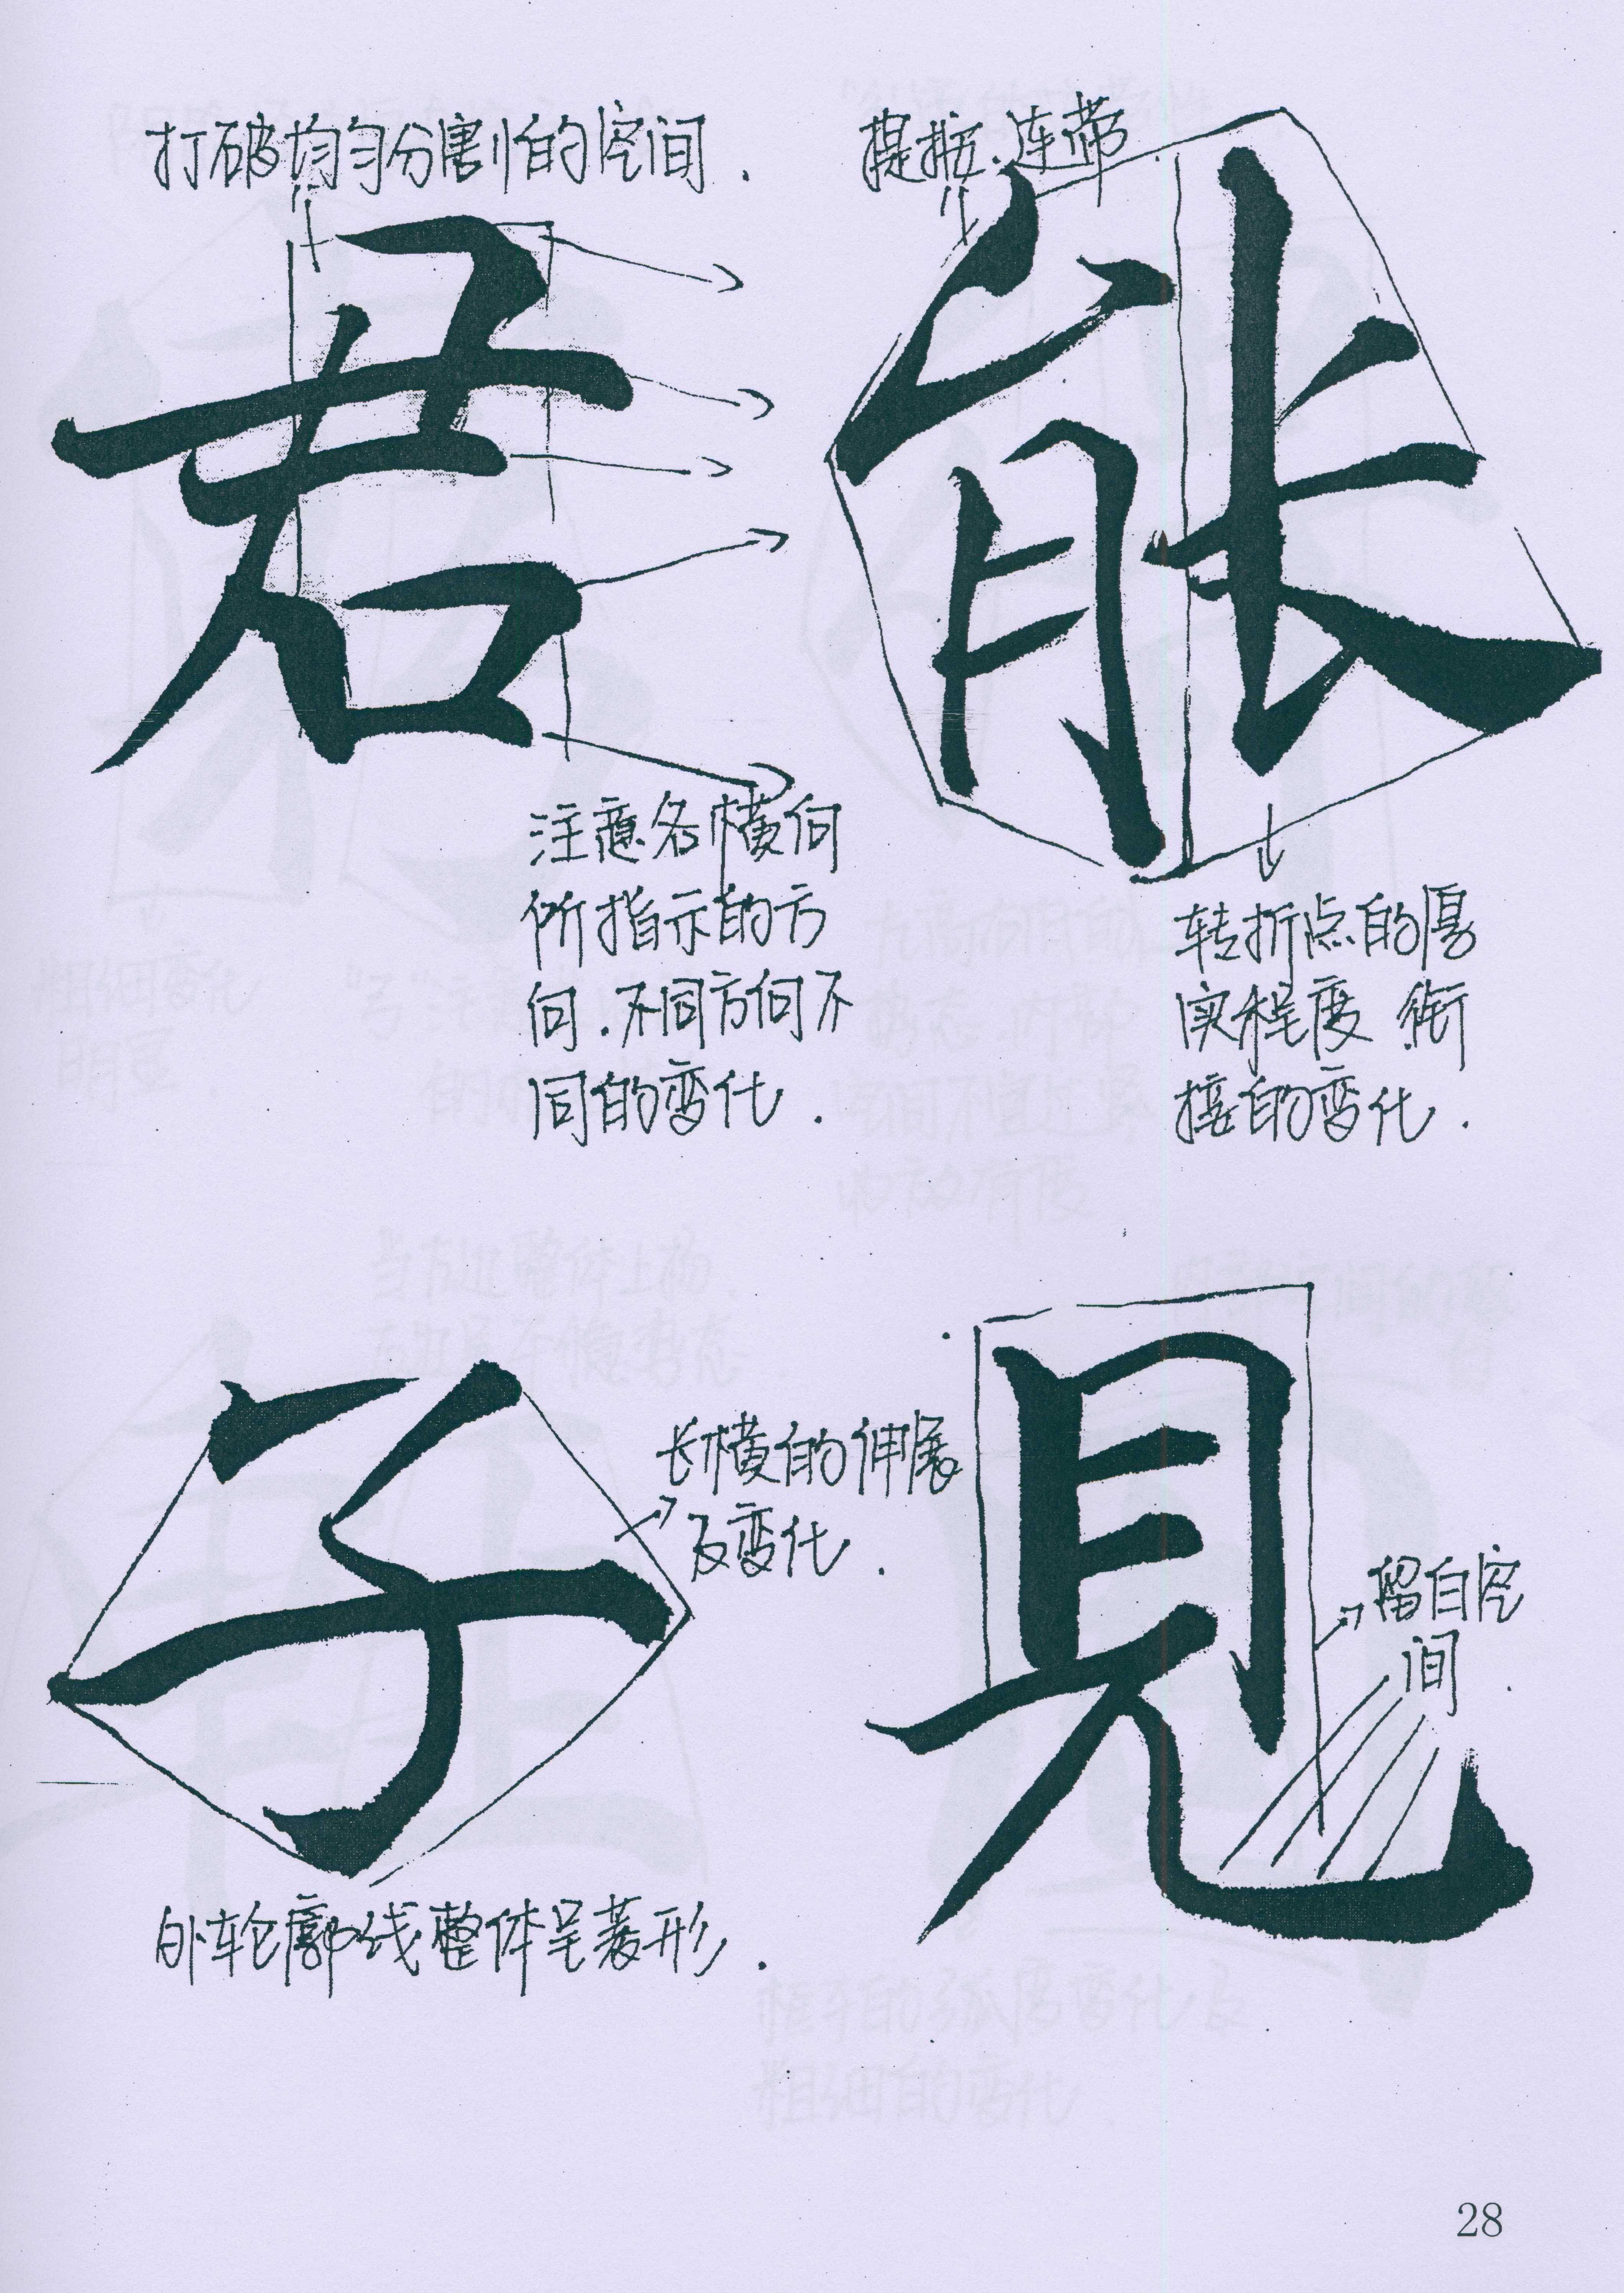 打破均匀分割的空间.
君
注意各横向
所指示的方
向.不同方向不
同的变化.
提按.连带
能
转折点的厚
实程度 衔
接的变化.
子
长横的伸展
及变化.
外轮廓线整体呈菱形.
見
留白空
间.
28